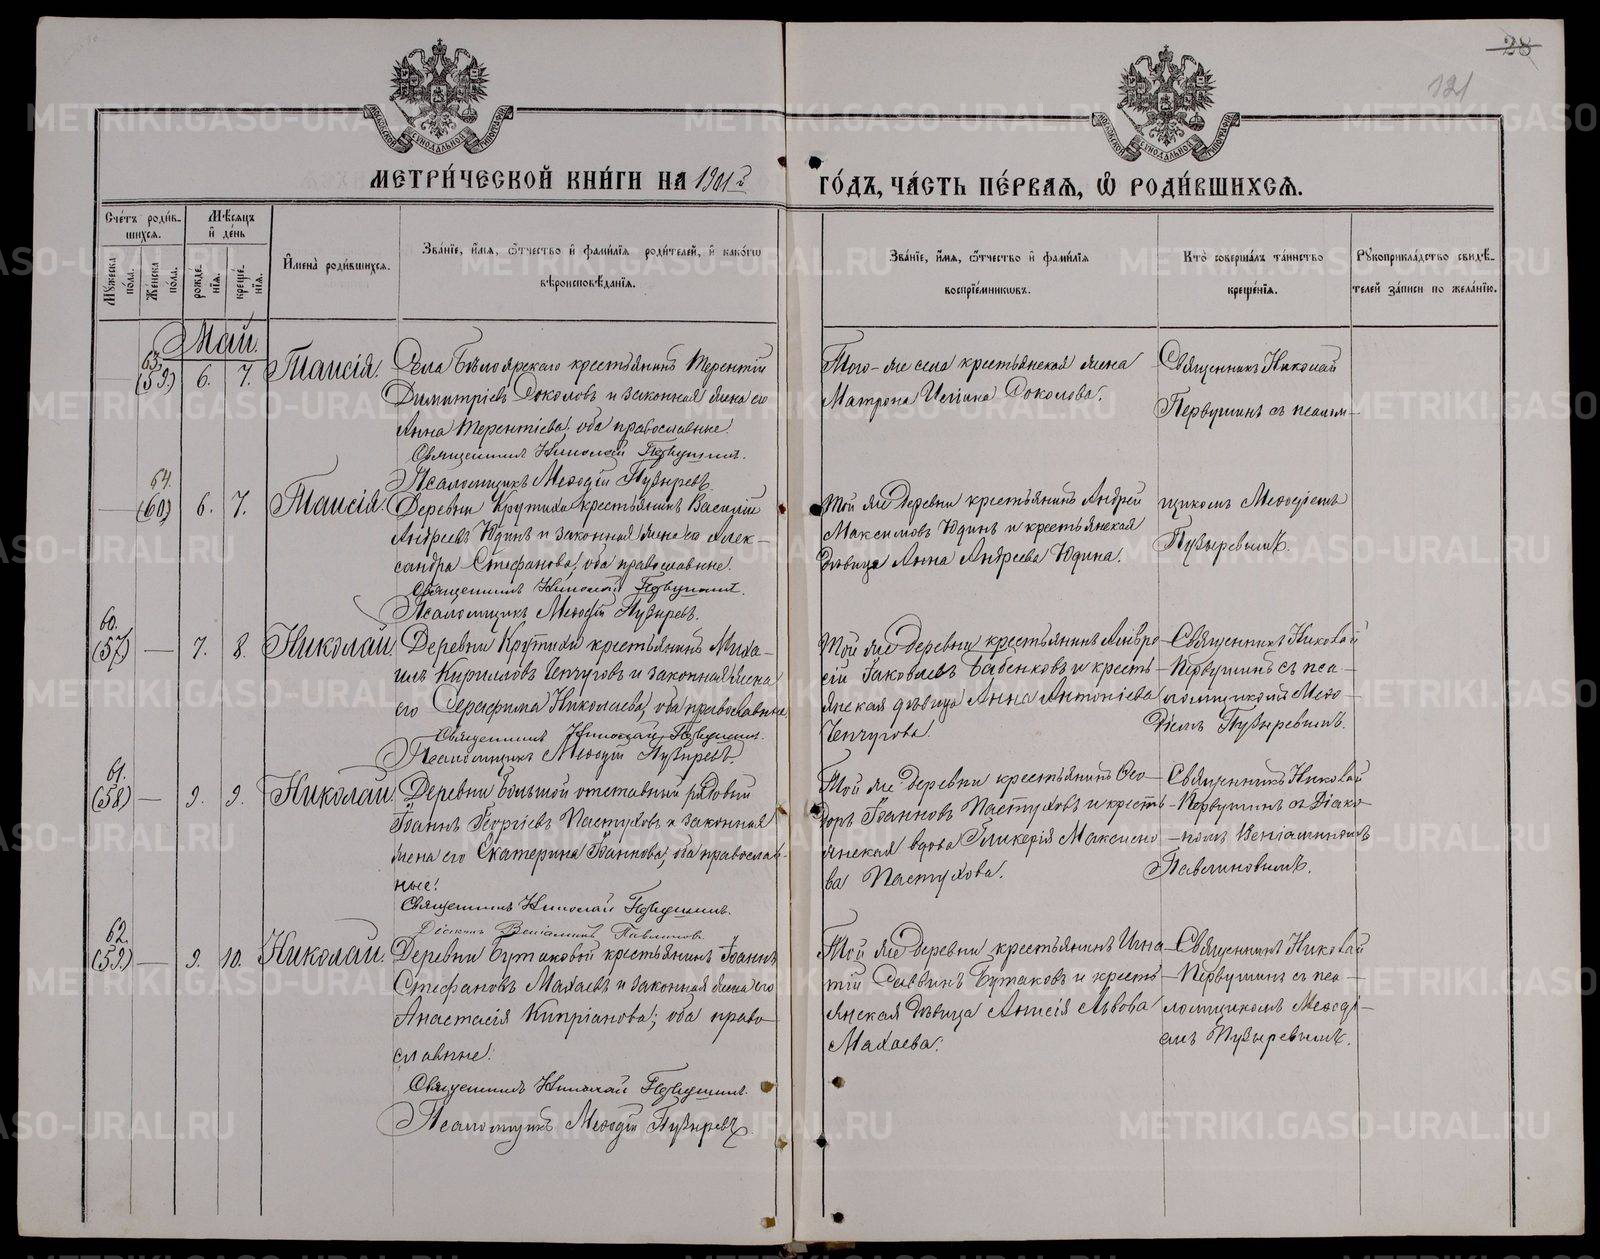 28
121
МЕТРИ́ЧЕСКОЙ КНИ́ГИ НА 1901й ГО́ДЪ, ЧА́СТЬ ПЕ́РВАЯ, Ѿ РОДИ́ВШИХСЯ.
Сче́тъ роди́в-
шихся.
Му́жеска по́ла.
Же́нска по́ла.
Мѣ́сяцъ
и҆ де́нь
рожде́нїя.
креще́нїя.
И҆мена̀ роди́вшихся.
Зва́нїе, и҆́мя, ѻ҆́тчество и҆ фами́лїя роди́телей, и҆ како́гѡ
вѣроисповѣ́данїя.
Зва́нїе, и҆́мя, ѻ҆́тчество и҆ фами́лїя
воспрїе́мникѡвъ.
Кто̀ соверша́лъ та́инство
креще́нїя.
Рꙋкоприкла́дство свидѣ́-
телей за́писи по жела́нїю.
Май.
63.
(59.) 6. 7. Таисія.
Села Бѣлоярскаго крестьянинъ Терентій
Димитріевъ Соколовъ и законная жена его
Анна Терентіева; оба православные.
Священникъ Николай Первушинъ.
Псаломщикъ Меѳодій Пузыревъ.
Того-же села крестьянская жена
Матрона Соколова.
Священникъ Николай
Первушинъ съ псалом-
64.
(60) 6. 7. Таисія.
Деревни Крутихи крестьянинъ Василій
Андреевъ Юдинъ и законная жена его Алек-
сандра Стефанова, оба православные.
Священникъ Николай Первушинъ.
Псаломщикъ Меѳодій Пузыревъ.
Той же деревни крестьянинъ Андрей
Максимовъ Юдинъ и крестьянская
дѣвица Анна Андреева Юдина.
щикомъ Меѳодіемъ
Пузыревымъ.
60.
(57) — 7. 8. Николай
Деревни Крутихи крестьянинъ Миха-
илъ Кирилловъ Чепчуговъ и законная жена
его Серафима Николаева, оба православные
Священникъ Николай Первушинъ.
Псаломщикъ Меѳодій Пузыревъ.
Той же деревни крестьянинъ Амвро-
сій Іаковлевъ Бабенковъ и кресть-
янская дѣвица Анна Антоніева
Чепчугова.
Священникъ Николай
Первушинъ съ пса-
ломщикомъ Меѳо-
діемъ Пузыревымъ.
61.
(58) — 9. 9. Николай.
Деревни Большой отставный рядовый
Іоаннъ Георгіевъ Пастуховъ и законная
жена его Екатерина Іоаннова; оба православ-
ные.
Священникъ Николай Первушинъ.
Діаконъ Веніаминъ Павлиновъ.
Той же деревни крестьянинъ Ѳео-
доръ Іоанновъ Пастуховъ и кресть-
янская вдова Гликерія Максимо-
ва Пастухова.
Священникъ Николай
Первушинъ съ діако-
номъ Веніаминомъ
Павлиновымъ.
62.
(59.) — 9. 10. Николай.
Деревни Бутаковой крестьянинъ Іоаннъ
Стефановъ Махаевъ и законная жена его
Анастасія Кипріанова; оба право-
славные.
Священникъ Николай Первушинъ.
Псаломщикъ Меѳодій Пузыревъ.
Той же деревни крестьянинъ Игна-
тій Саввинъ Бутаковъ и кресть-
янская дѣвица Анисія Львова
Махаева.
Священникъ Николай
Первушинъ съ пса-
ломщикомъ Меѳоді-
емъ Пузыревымъ.
METRIKI.GASO-URAL.RU